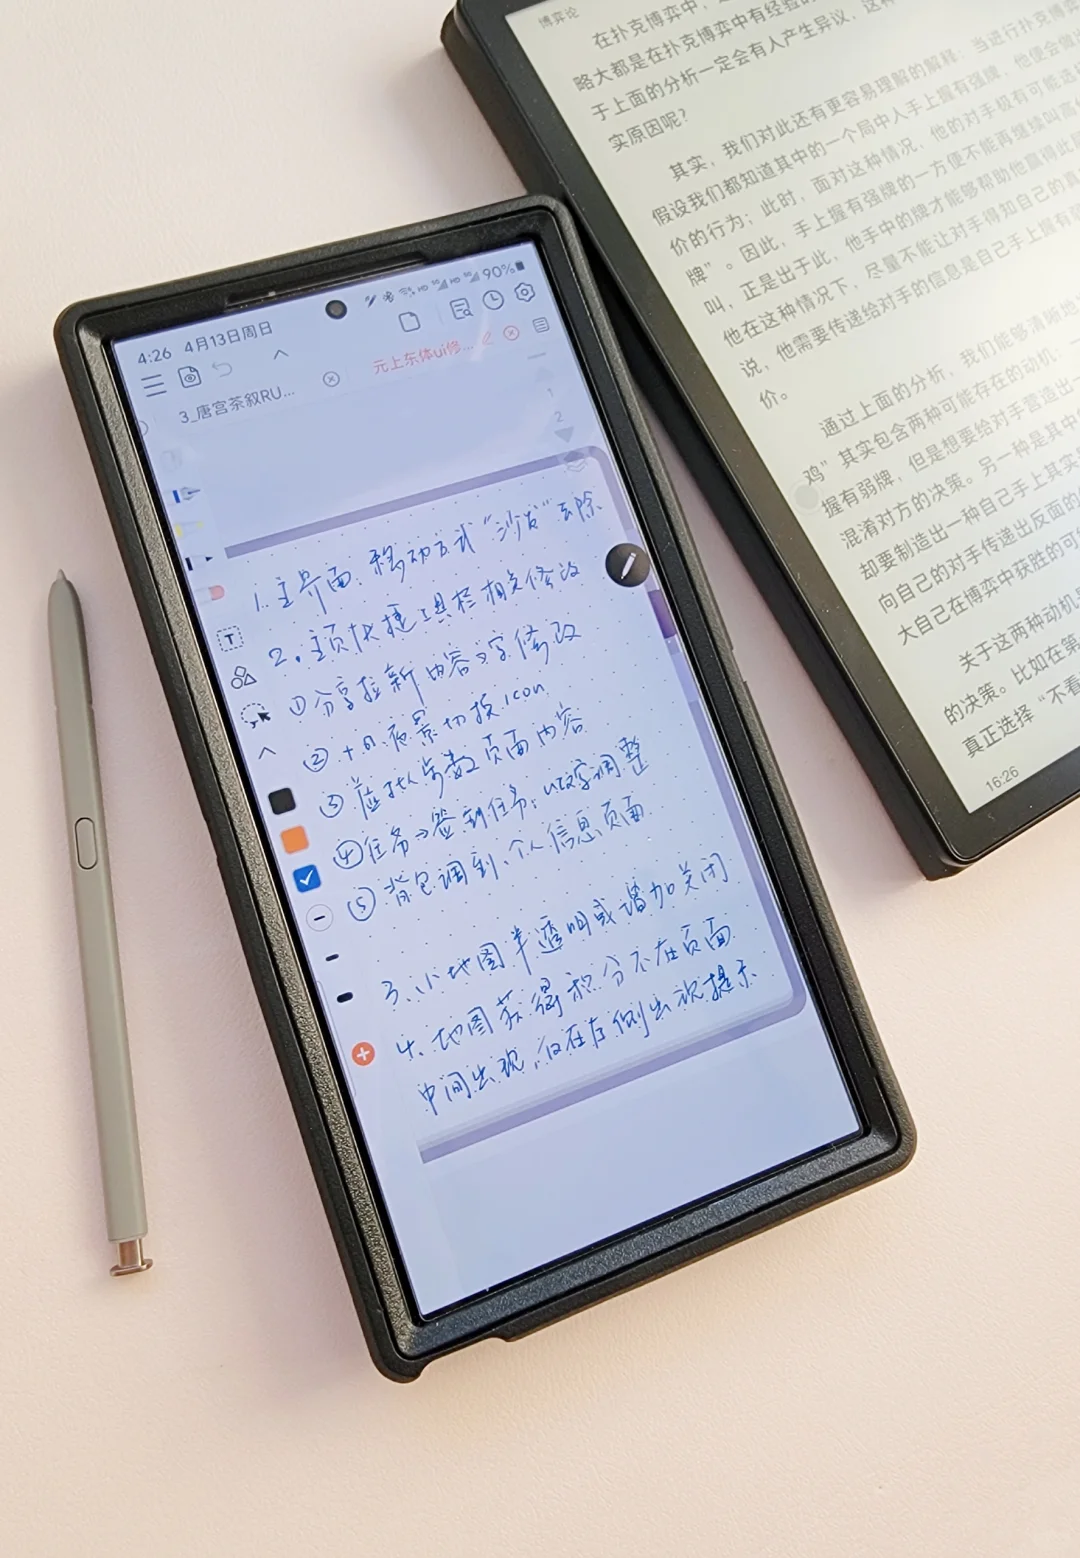 4:26 4月13日周日
HD 5G HD 5G 90%
3_唐宫茶叙RU...
元上东体ui修...
1
2
T
1. 主界面. 移动方式“沙发”去除.
2. 主页快捷工具栏相关修改
①分享拉新内容文字修改
② 夜景切换icon
③ 虚拟步数页面内容
④任务→签到任务; ui文字调整
⑤ 背包调到个人信息页面
3. 小地图半透明或增加关闭
4. 地图获得积分不在页面
中间出现, 仅在右侧出现提示
博弈论
在扑克博弈中,
略大都是在扑克博弈中有经验的
于上面的分析一定会有人产生异议,这种
实原因呢?
其实,我们对此还有更容易理解的解释:当进行扑克博
假设我们都知道其中的一个局中人手上握有强牌,他便会做出
价的行为;此时,面对这种情况,他的对手极有可能选
牌”。因此,手上握有强牌的一方便不能再继续叫高
叫,正是出于此,他手中的牌才能够帮助他赢得此
他在这种情况下,尽量不能让对手得知自己的真
说,他需要传递给对手的信息是自己手上握有
价。
通过上面的分析,我们能够清晰地
鸡”其实包含两种可能存在的动机:一
握有弱牌,但是想要给对手营造出一
混淆对方的决策。另一种是其中
却要制造出一种自己手上其实
向自己的对手传递出反面的
大自己在博弈中获胜的可
关于这两种动机
的决策。比如在第
真正选择“不看
16:26